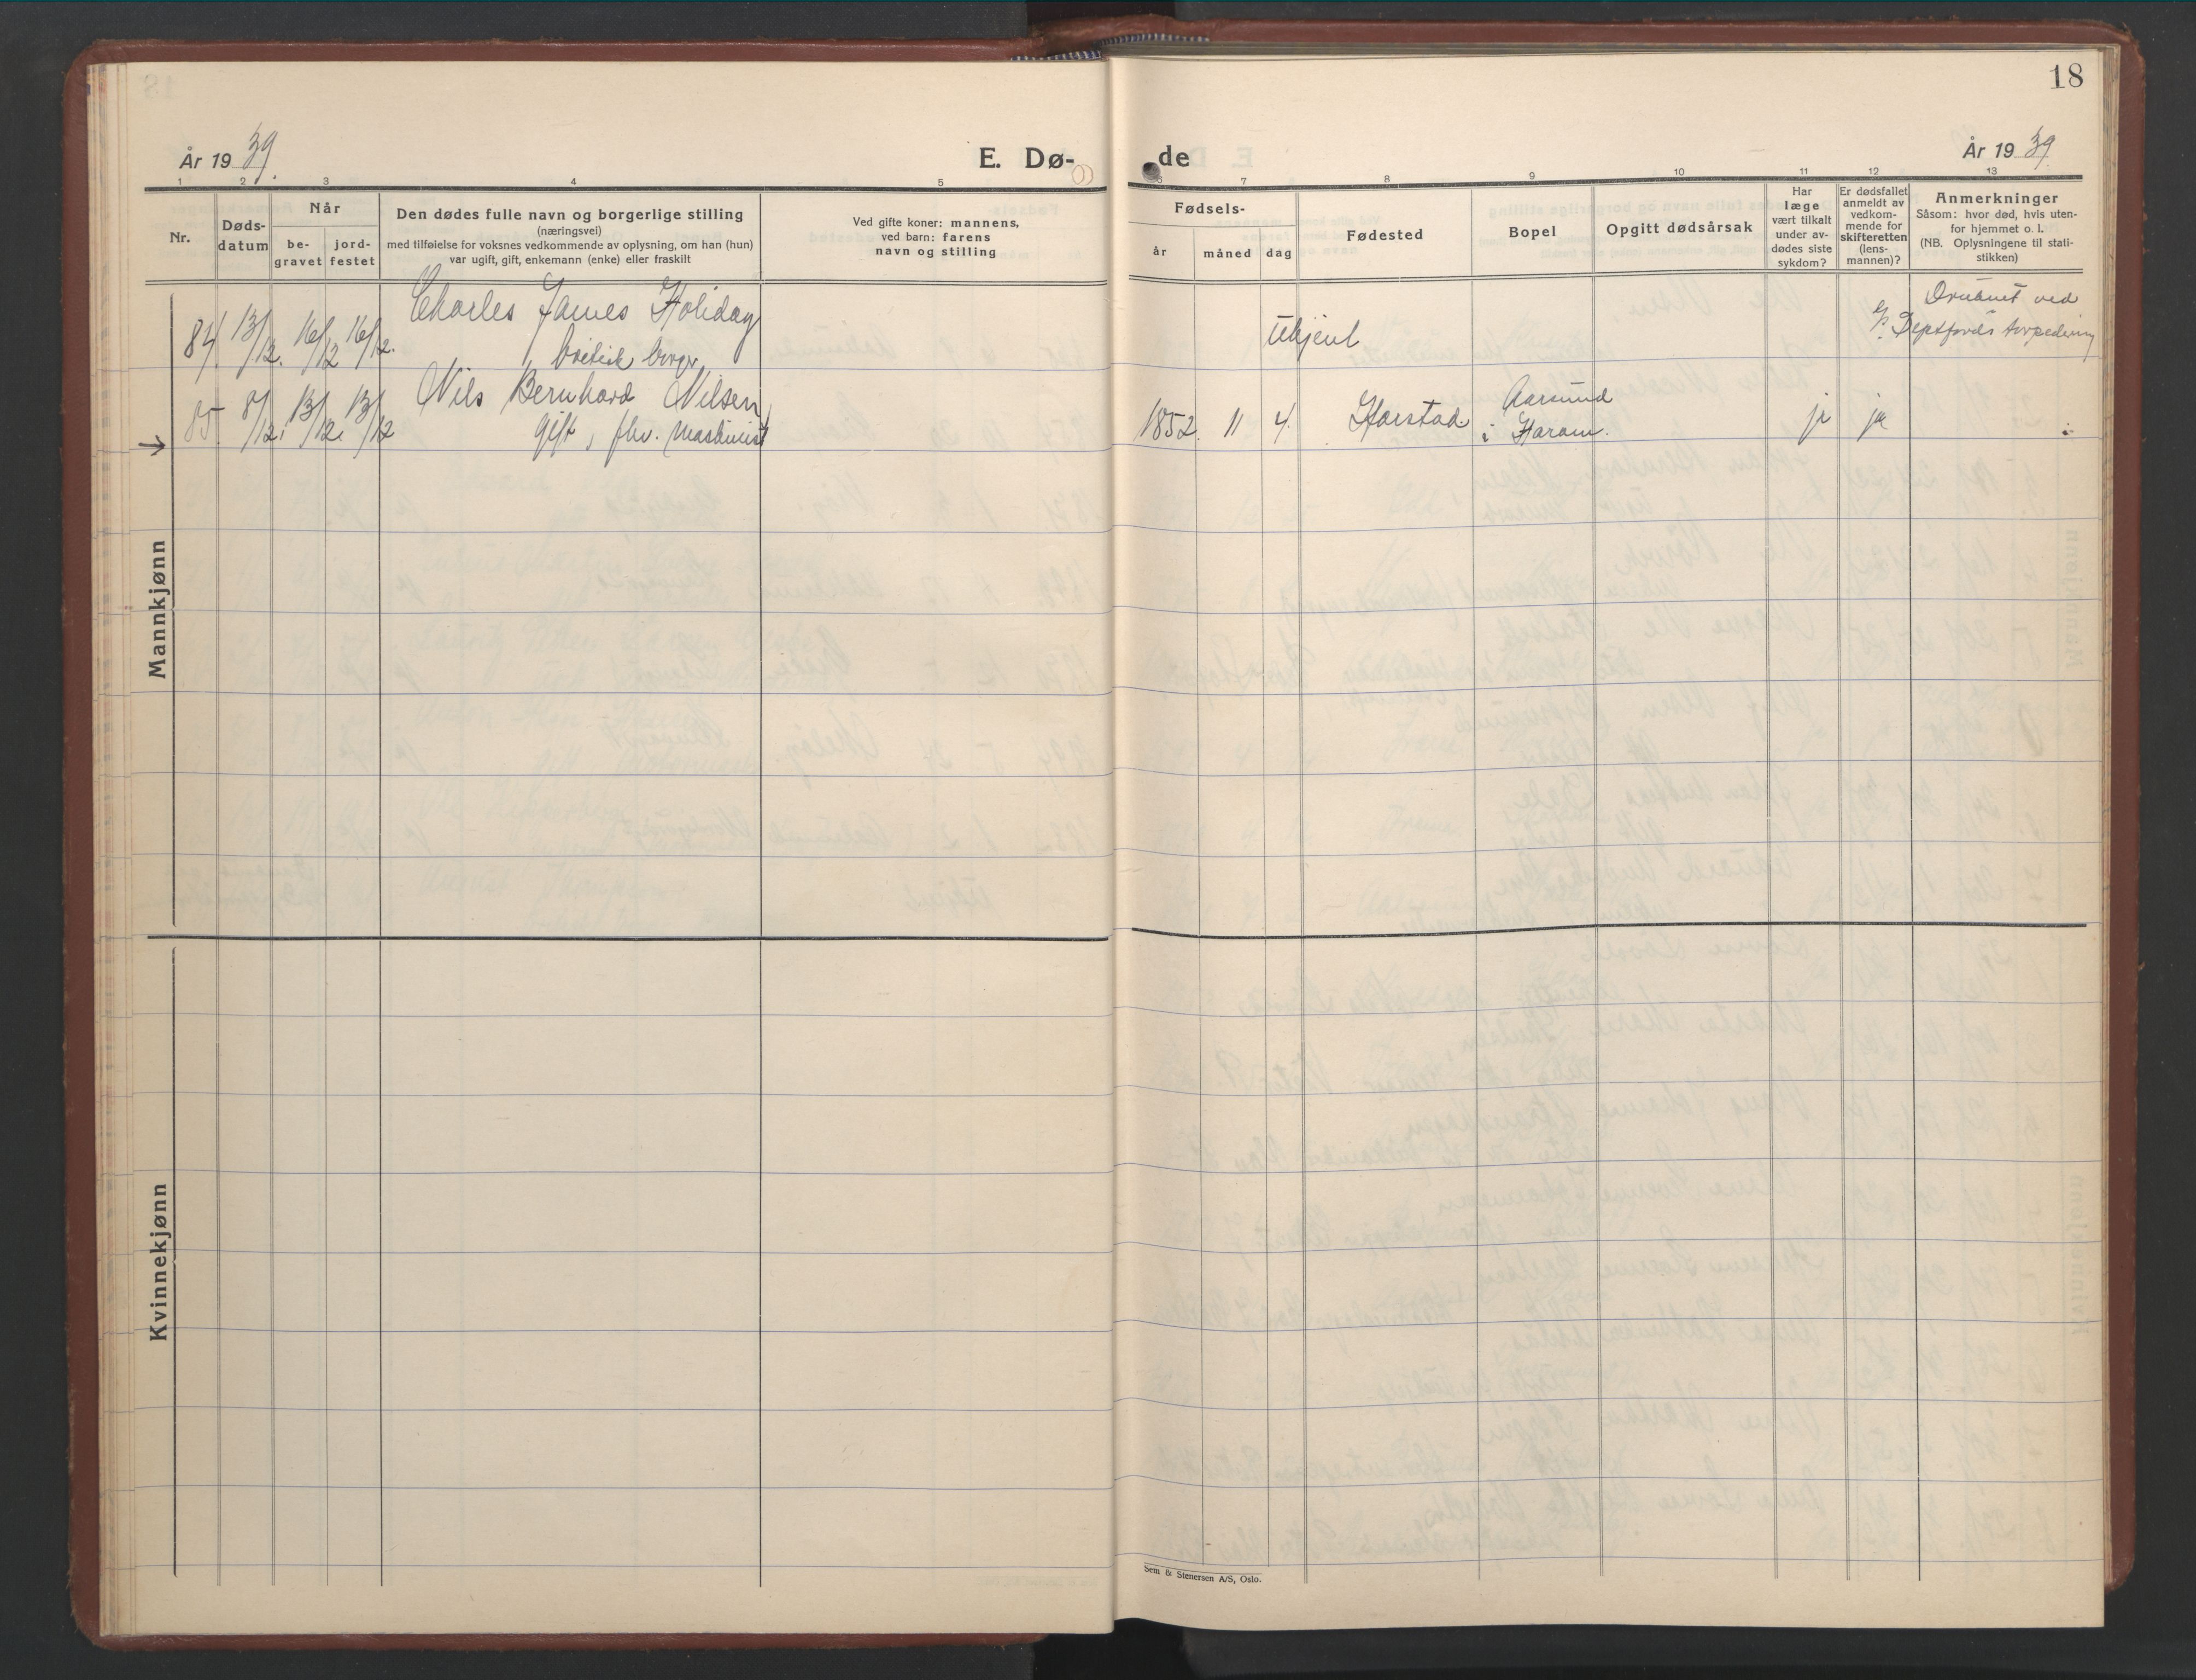 18
År 1939.
E. Dø-
de
År 1939.
1 2 3 4 5
6 7 8 9 10 11 12 13
Nr.
Døds-
datum
Når
be-
gravet
jord-
festet
Den dødes fulle navn og borgerlige stilling
(næringsvei)
med tilføielse for voksnes vedkommende av oplysning, om han (hun)
var ugift, gift, enkemann (enke) eller fraskilt
Ved gifte koner: mannens,
ved barn: farens
navn og stilling
Fødsels-
år
måned
dag
Fødested
Bopel
Opgitt dødsårsak
Har
læge
vært tilkalt
under av-
dødes siste
sykdom?
Er dødsfallet
anmeldt av
vedkom-
mende for
skifteretten
(lens-
mannen)?
Anmerkninger
Såsom: hvor død, hvis uten-
for hjemmet o. l.
(NB. Oplysningene til stati-
stikken)
Mannkjønn
84. 13/12. 16/12 16/12. Charles James Holiday
britisk borger
Ukjent
Druknet ved
Deptfords torpedering
85. 8/12. 13/12. 13/12 Nils Bernhard Nilsen,
gift, fhv. maskinist
1852. 11 4. Harstad
Aarsund
i Haram.
ja ja
Kvinnekjønn
Sem & Stenersen A/S, Oslo.